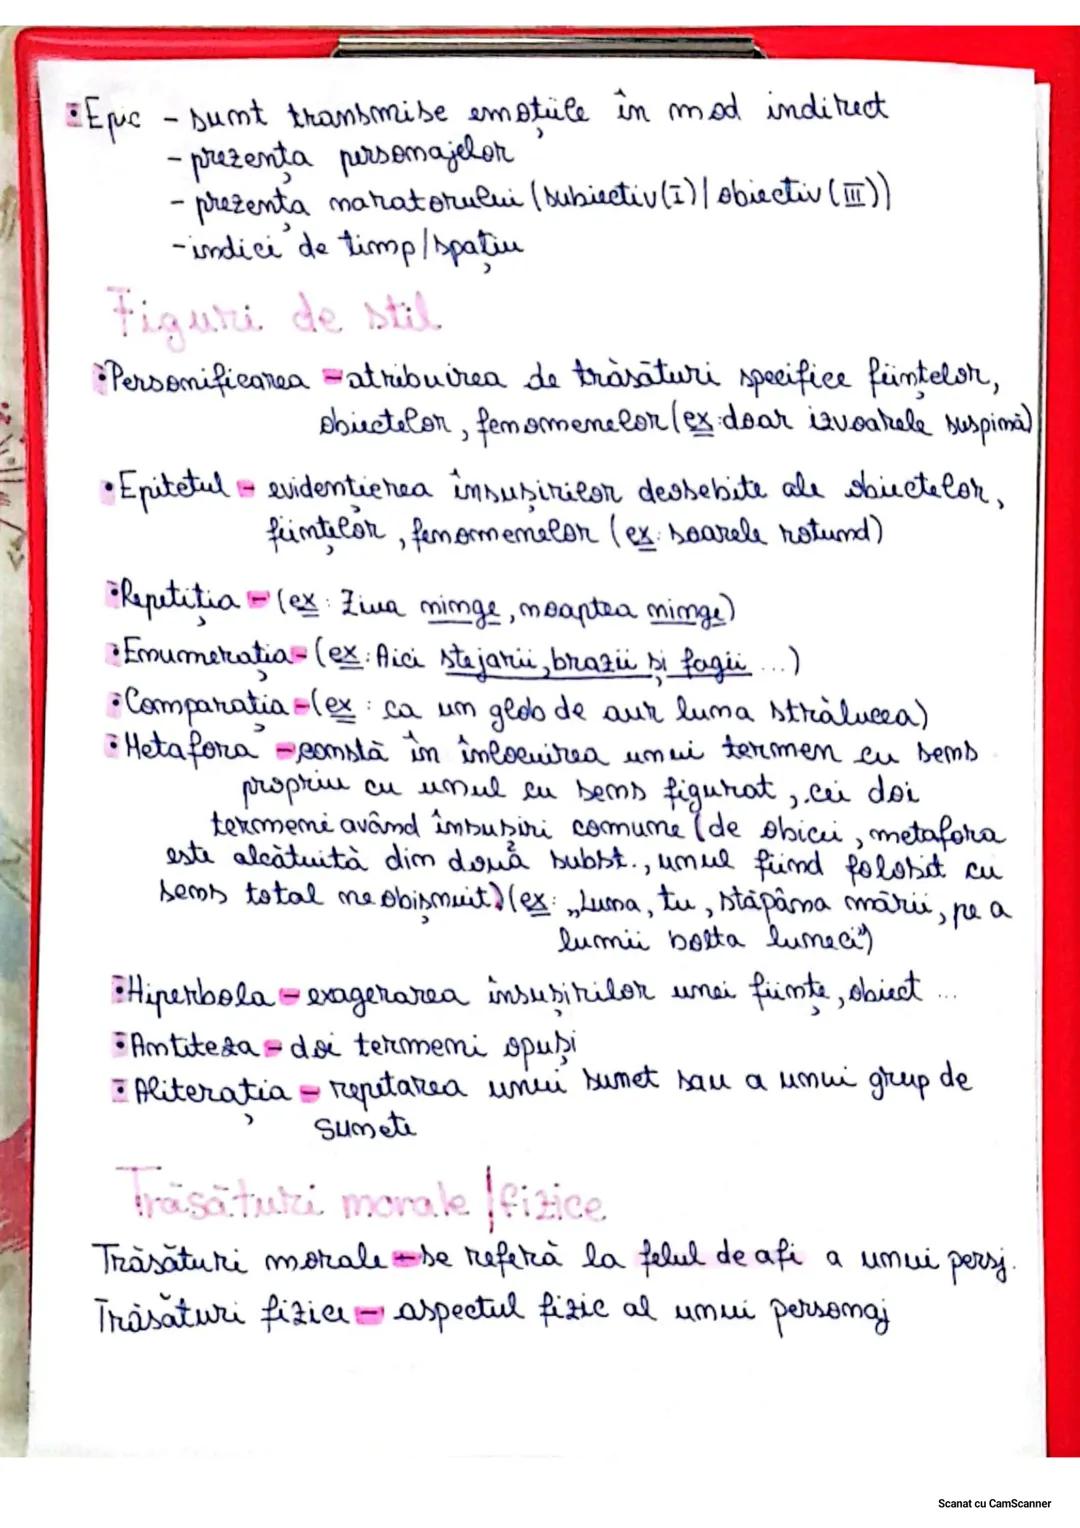 Epic - sunt transmise emoțiile în mod indirect
- prezența personajelor
- prezența naratorului (subiectiv (I) / obiectiv (III))
- indici de timp/spațiu
Figuri de stil
• Personificarea - atribuirea de trăsături specifice ființelor,
obiectelor, fenomenelor (ex: doar izvoarele suspină)
• Epitetul - evidențierea însușirilor deosebite ale obiectelor,
ființelor, fenomenelor (ex: soarele rotund)
• Repetiția - (ex: Ziua ninge, noaptea ninge)
• Enumerația - (ex: Aici stejarii, brazii și fagii ...)
• Comparația - (ex: ca un glob de aur luna strălucea)
• Metafora - constă în înlocuirea unui termen cu sens
propriu cu unul cu sens figurat, cei doi
termeni având însușiri comune (de obicei, metafora
este alcătuită din două subst., unul fiind folosit cu
sens total neobișnuit) (ex: „Luna, tu, stăpâna mării, pe a
lumii bolta luneci")
• Hiperbola - exagerarea însușirilor unei ființe, obiect ...
• Antiteza - doi termeni opuși
• Aliterația - repetarea unui sunet sau a unui grup de
sunete
Trăsături morale / fizice
Trăsături morale - se referă la felul de a fi a unui persj.
Trăsături fizice - aspectul fizic al unui personaj
Scanat cu CamScanner